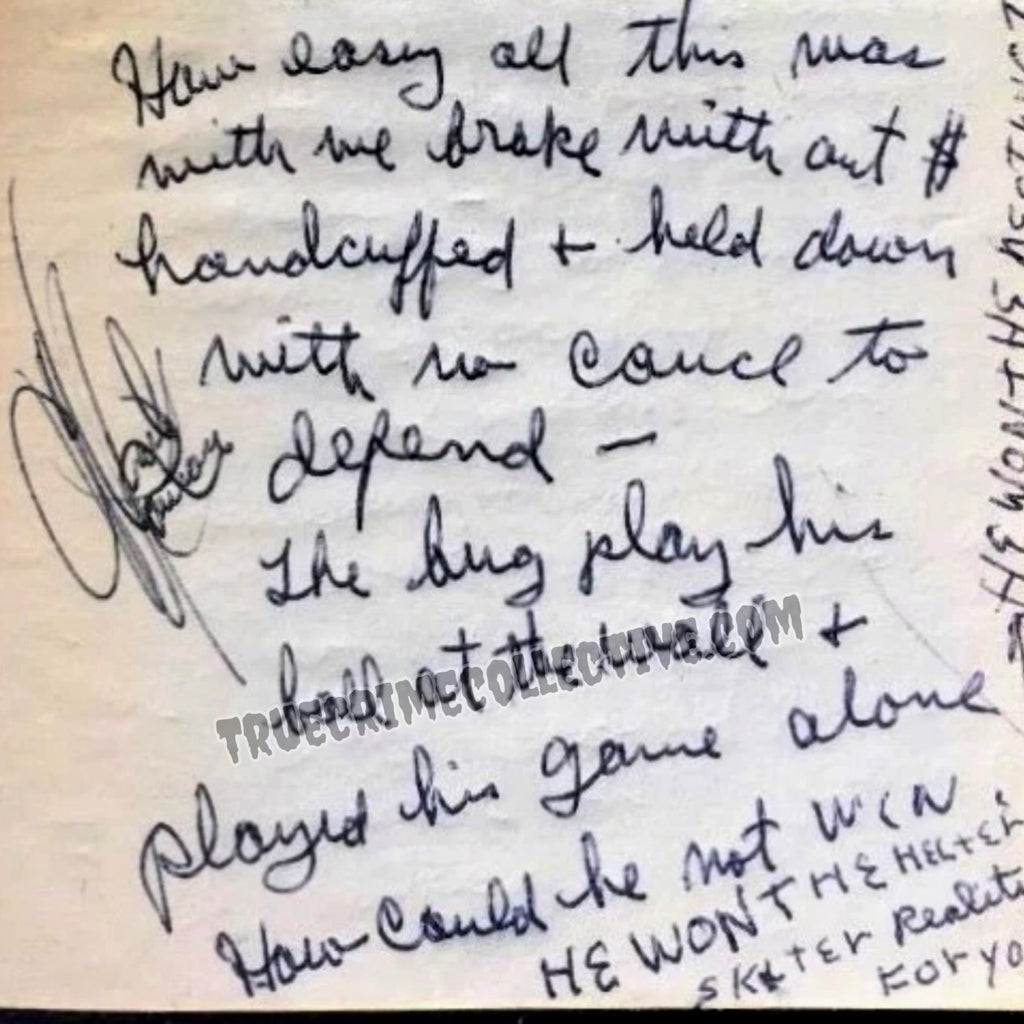 How easy all this was
with me broke with out $
handcuffed + held down
with no cauce to
defend –
The bug play his
ball at the wall +
played his game alone
How Could he not WIN
HE WON THE HELTER
SKELTER Reality
FOR YO
TRUECRIMECOLLECTIVE.COM